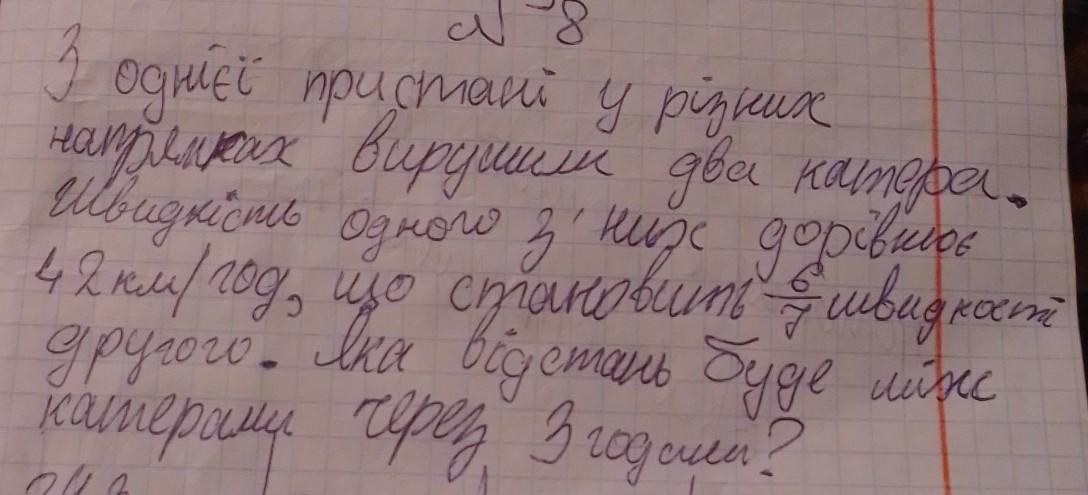 № 8
З однієї пристані у різних
напрямках вирушили два катера.
Швидкість одного з' них дорівнює
42 км/год, що становить 6/7 швидкості
другого. Яка відстань буде між
катерами через 3 години?